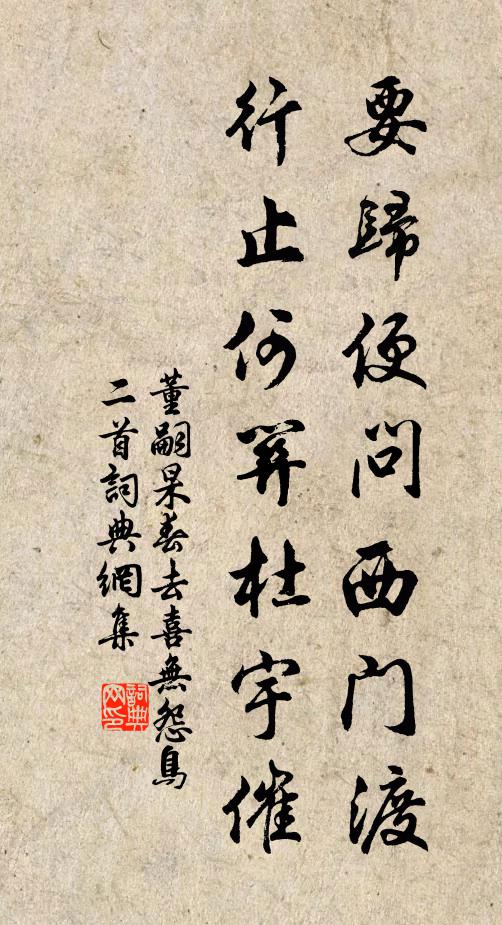 要歸便問西門渡
行止何關杜宇催
董嗣杲春去喜無怨鳥
二首詞典網集
詞典网印